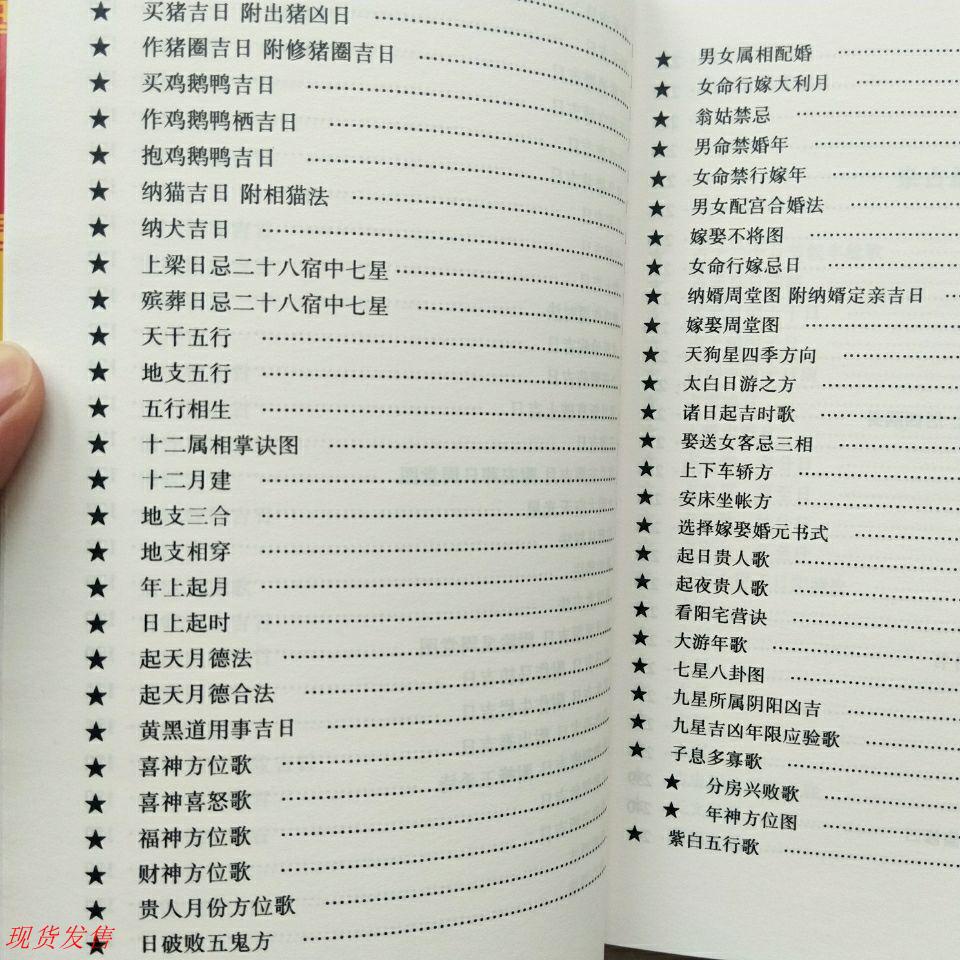 ★ 买猪吉日 附出猪凶日
★ 作猪圈吉日 附修猪圈吉日
★ 买鸡鹅鸭吉日
★ 作鸡鹅鸭栖吉日
★ 抱鸡鹅鸭吉日
★ 纳猫吉日 附相猫法
★ 纳犬吉日
★ 上梁日忌二十八宿中七星
★ 殡葬日忌二十八宿中七星
★ 天干五行
★ 地支五行
★ 五行相生
★ 十二属相掌诀图
★ 十二月建
★ 地支三合
★ 地支相穿
★ 年上起月
★ 日上起时
★ 起天月德法
★ 起天月德合法
★ 黄黑道用事吉日
★ 喜神方位歌
★ 喜神喜怒歌
★ 福神方位歌
★ 财神方位歌
★ 贵人月份方位歌
★ 日破败五鬼方
★ 男女属相配婚
★ 女命行嫁大利月
★ 翁姑禁忌
★ 男命禁婚年
★ 女命禁行嫁年
★ 男女配宫合婚法
★ 嫁娶不将图
★ 女命行嫁忌日
★ 纳婿周堂图 附纳婿定亲吉日
★ 嫁娶周堂图
★ 天狗星四季方向
★ 太白日游之方
★ 诸日起吉时歌
★ 娶送女客忌三相
★ 上下车轿方
★ 安床坐帐方
★ 选择嫁娶婚元书式
★ 起日贵人歌
★ 起夜贵人歌
★ 看阳宅营诀
★ 大游年歌
★ 七星八卦图
★ 九星所属阴阳凶吉
★ 九星吉凶年限应验歌
★ 子息多寡歌
★ 分房兴败歌
★ 年神方位图
★ 紫白五行歌
现货发售